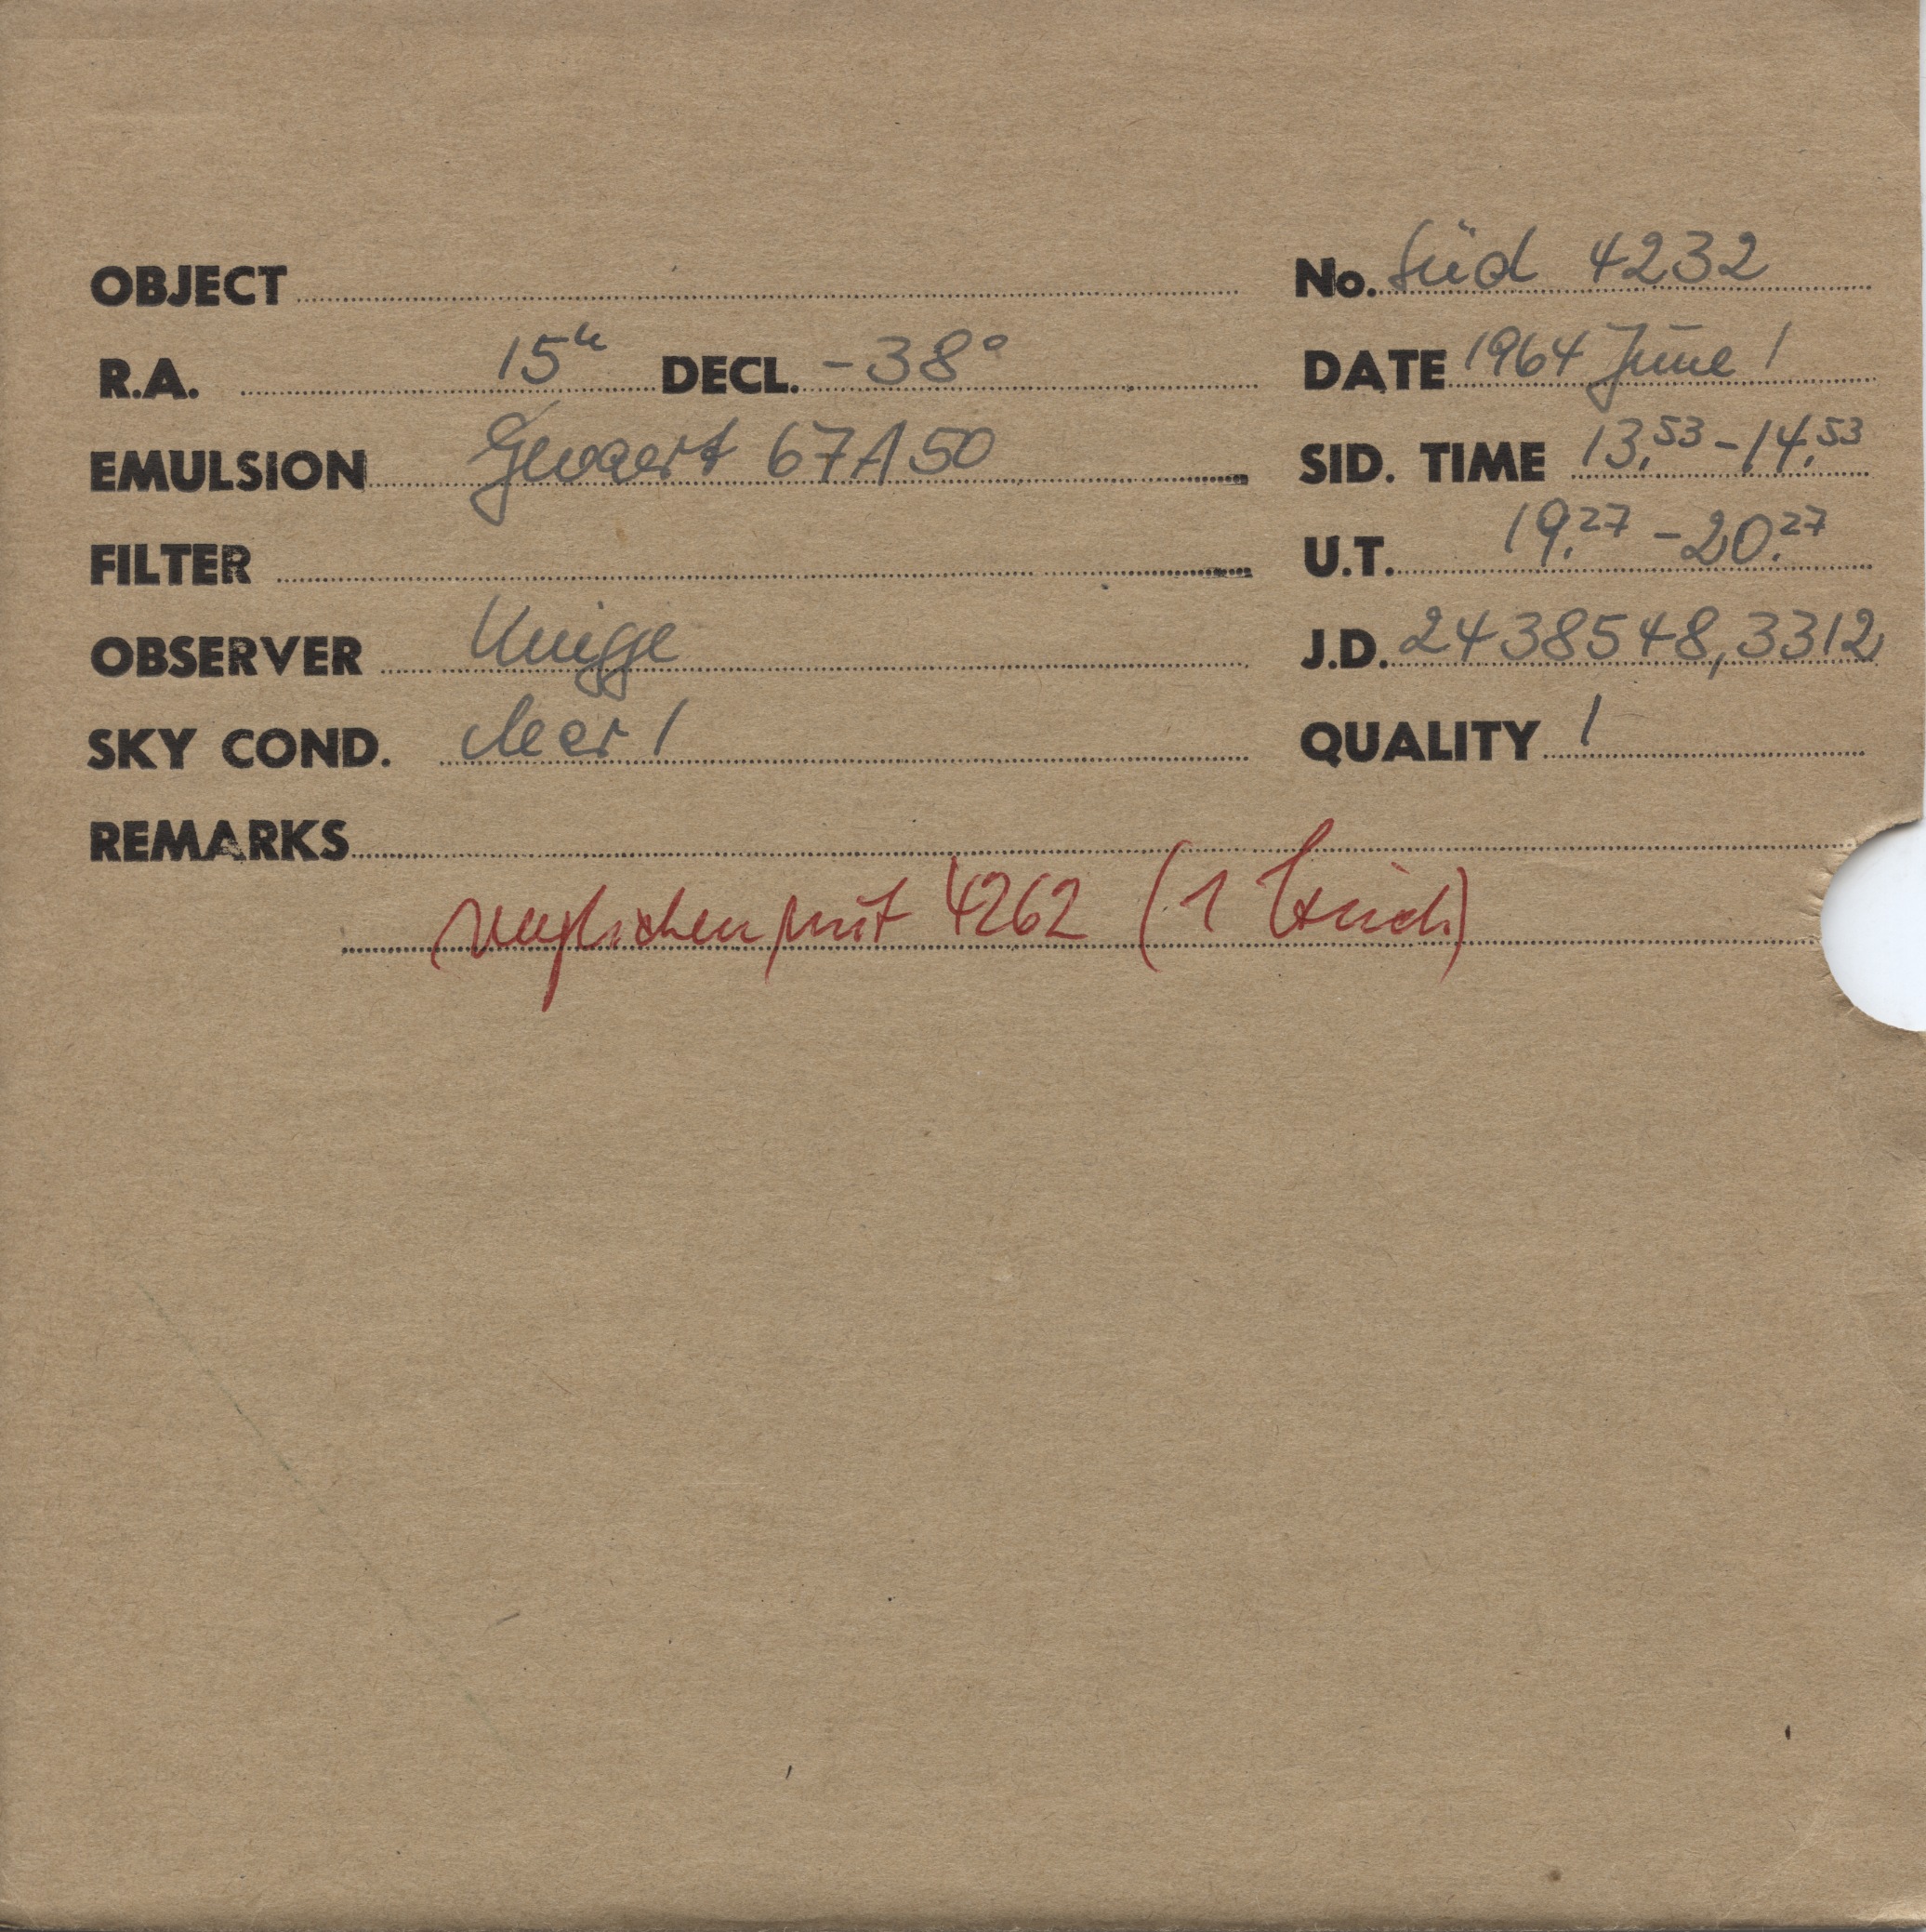 OBJECT No. Süd 4232
R.A. 15h DECL. -38°
DATE 1964 June 1
EMULSION Gevaert 67A50
SID. TIME 13.53 - 14.53
FILTER
U.T. 19.27 - 20.27
OBSERVER Knigge
J.D. 2438548,3312
SKY COND. clear 1
QUALITY 1
REMARKS
verglichen mit 4262 (1 Strich)